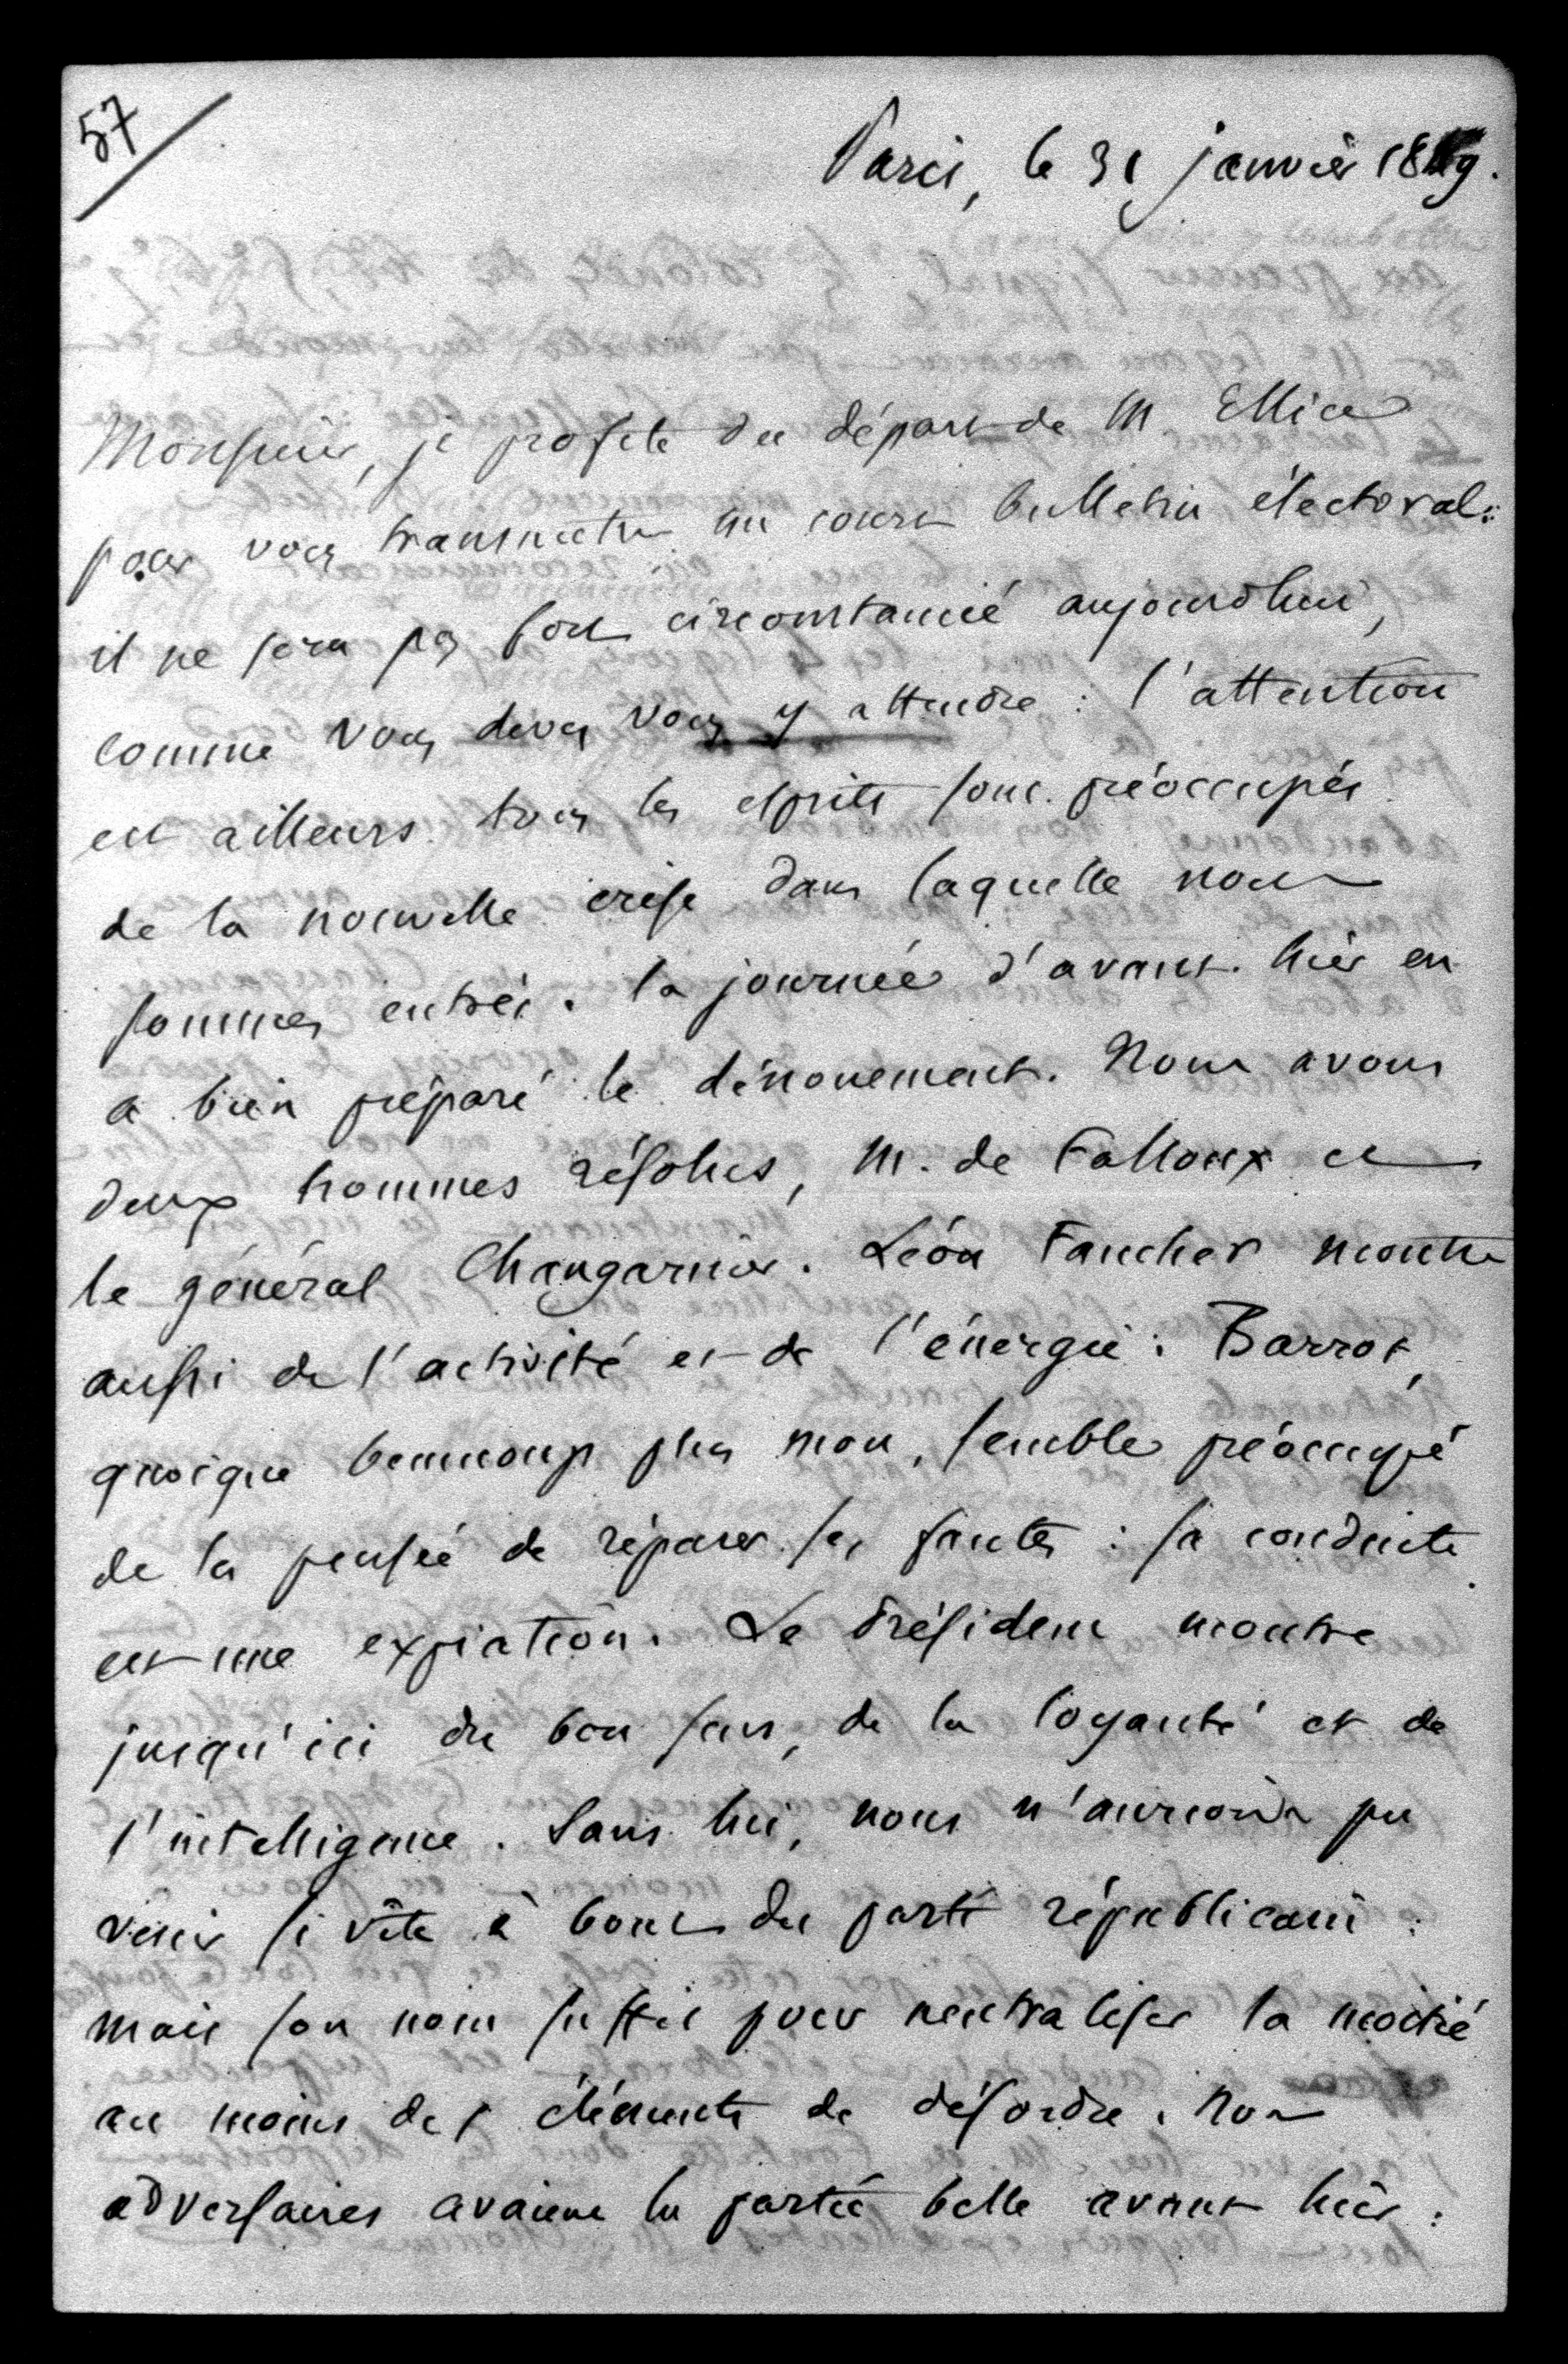 57
Paris, le 31 janvier 1849.
Monsieur, je profite du départ de M Ellice
pour vous transmettre un court bulletin électoral:
il ne sera pas fort circonstancié aujourd'hui,
comme vous devez vous y attendre : l'attention
est ailleurs. tous les esprits sont préoccupés
de la nouvelle crise dans laquelle nous
sommes entrés. la journée d'avant-hier en
a bien préparé le dénouement. Nous avons
deux hommes résolus, M. de Falloux et
le général Changarnier. Léon Faucher montre
aussi de l'activité et de l'énergie : Barrot,
quoique beaucoup plus mou, semble préoccupé
de la pensée de réparer ses fautes : sa conduite
est une expiation. Le Président montre
jusqu'ici du bon sens, de la loyauté et de
l'intelligence. Sans lui, nous n'aurions pu
venir si vite à bout du parti républicain :
mais son nom suffit pour neutraliser la moitié
au moins des éléments de désordre. Nos
adversaires avaient la partie belle avant hier :